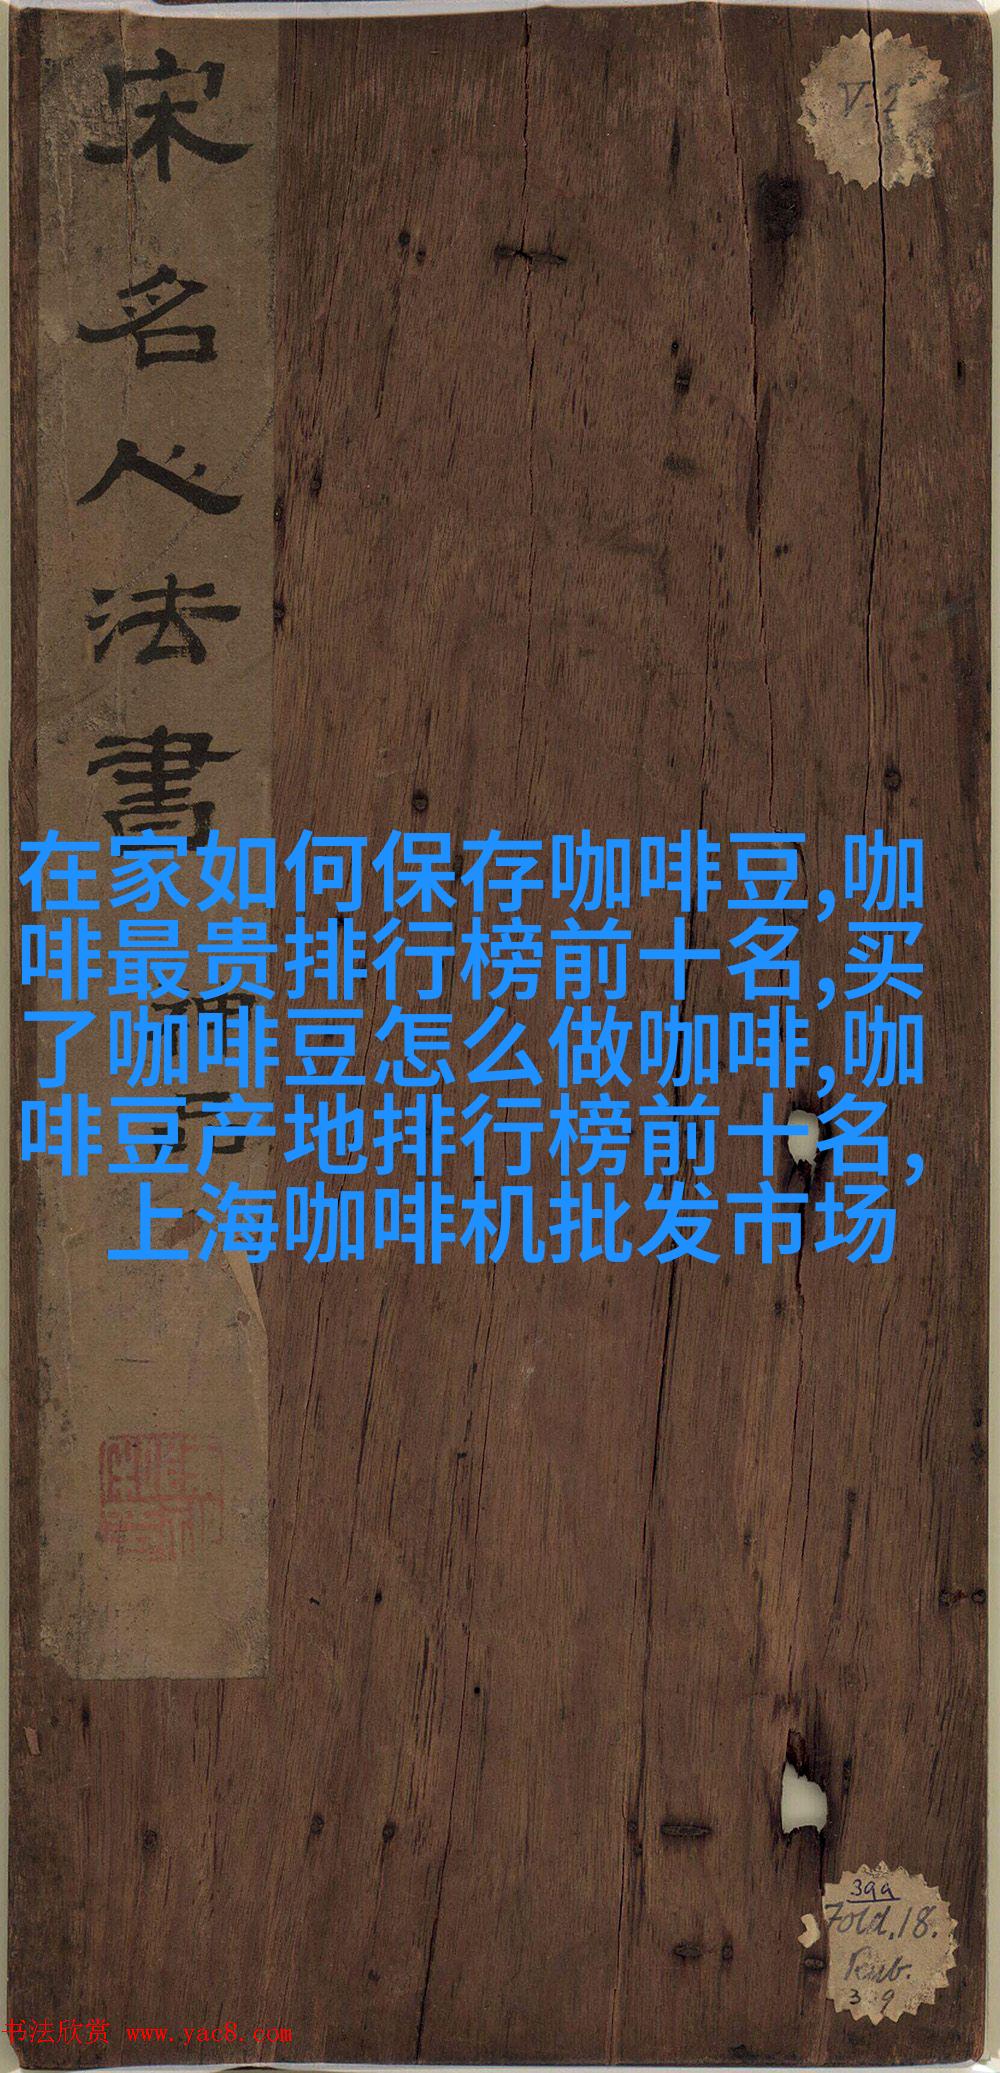 宋名人法書
V-2
在家如何保存咖啡豆,咖
啡最贵排行榜前十名,买
了咖啡豆怎么做咖啡,咖
啡豆产地排行榜前十名,
上海咖啡机批发市场
399
Fold.18.
书法欣赏 www.yac8.com